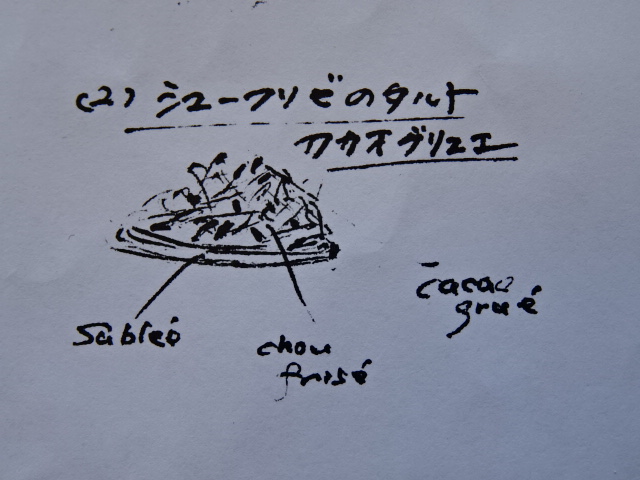 (2) シューフリゼのタルト
カカオグリュエ
Sableó
chou
frisé
cacao
grué